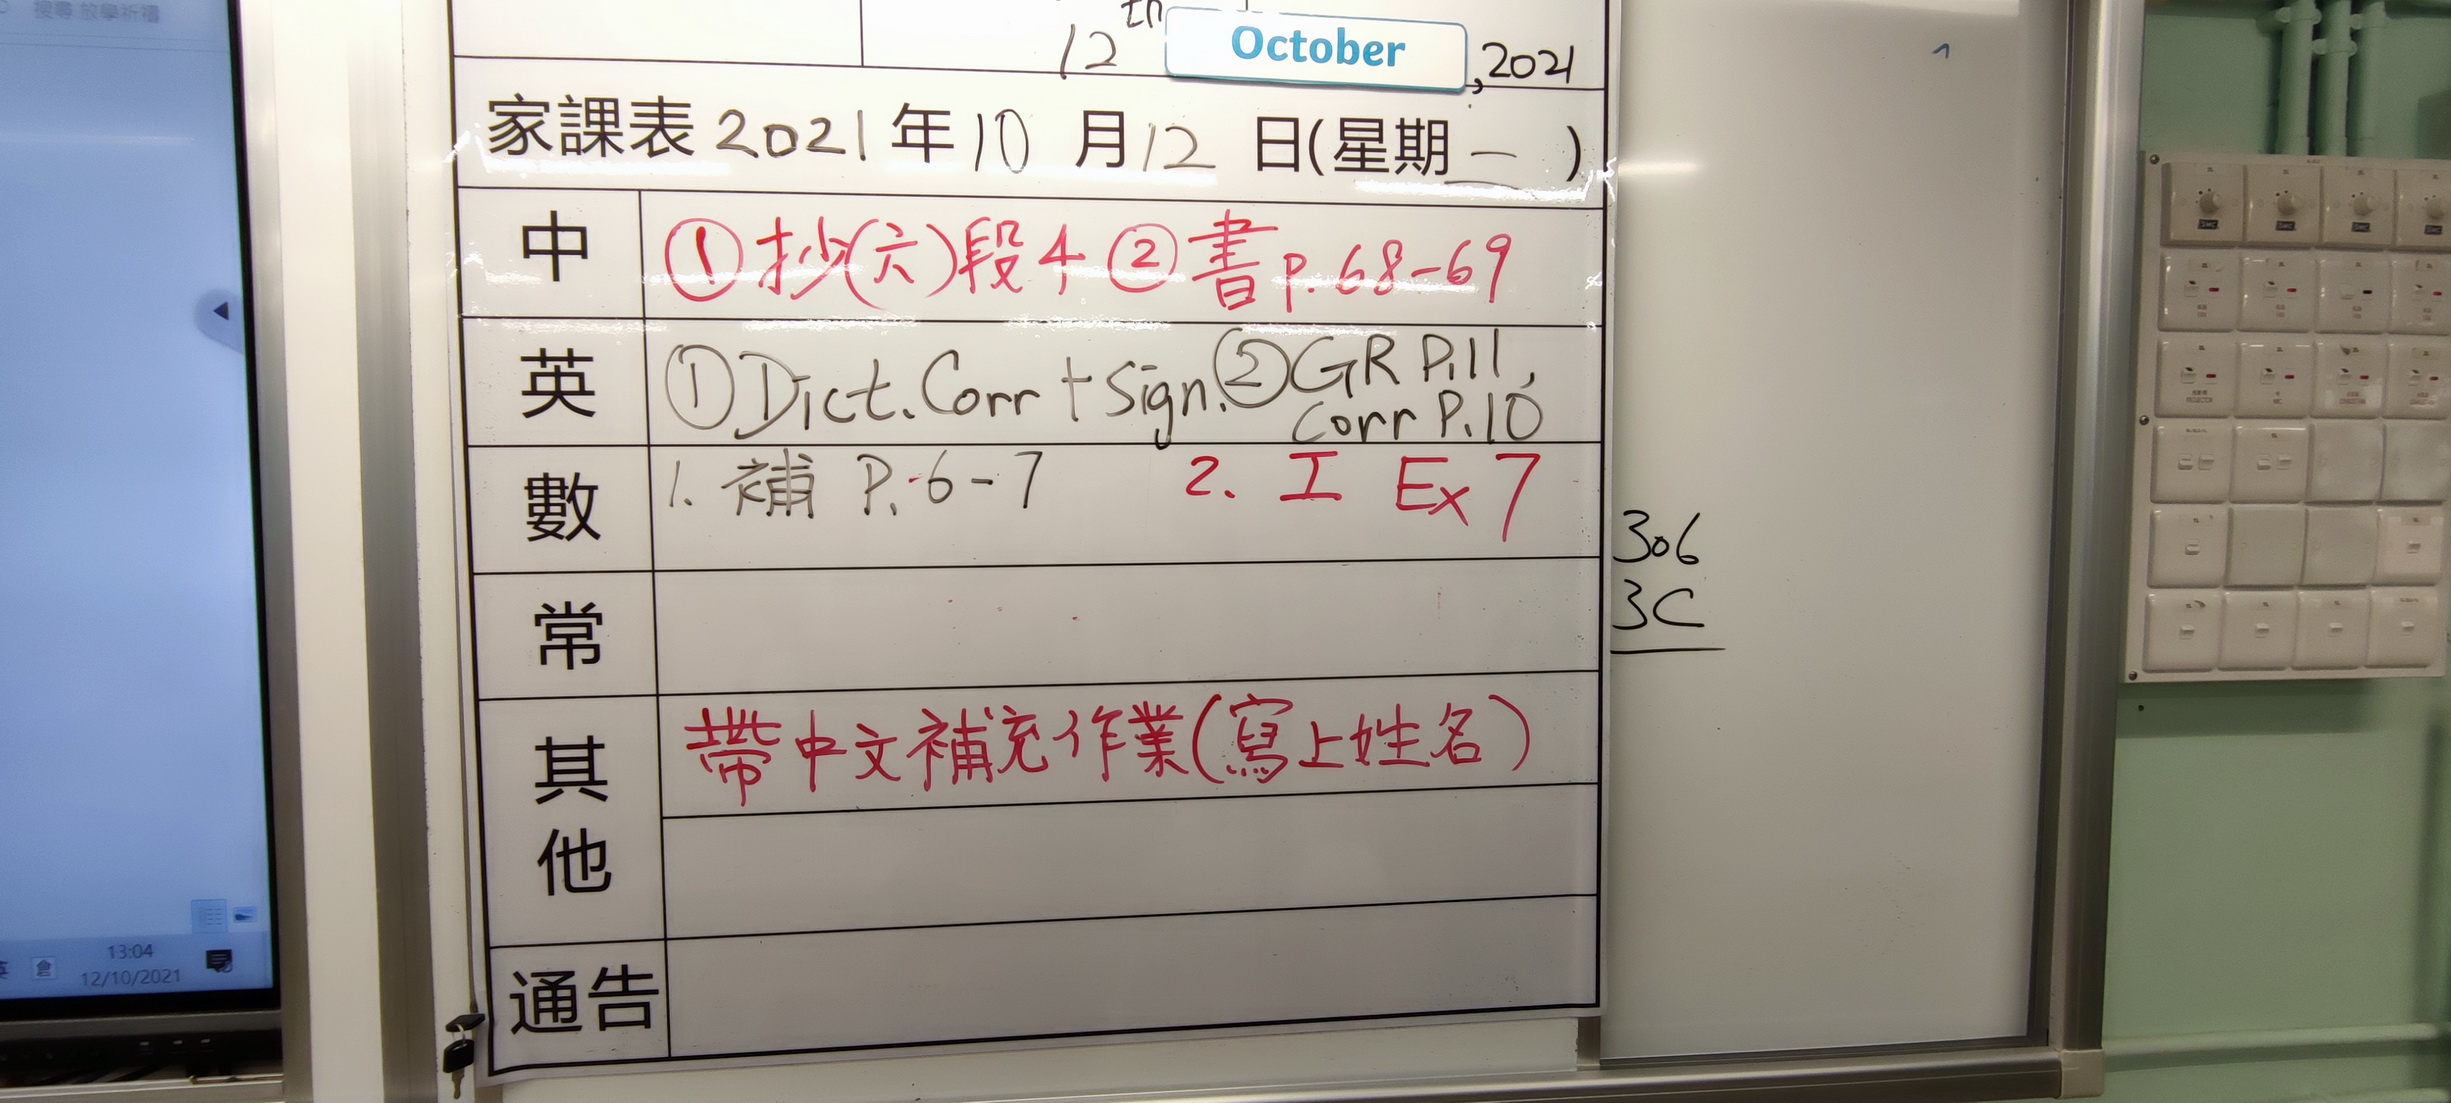 搜尋 放學祈禱
12th October, 2021
家課表 2021 年 10 月 12 日(星期二)
中 ① 抄(六)段4 ② 書 p.68-69
英 ① Dict. Corr + Sign. ② GR P.11,
Corr P.10
數 1. 補 P.6-7 2. 工 Ex 7
306
3C
常
其他 帶中文補充作業(寫上姓名)
通告
13:04
12/10/2021